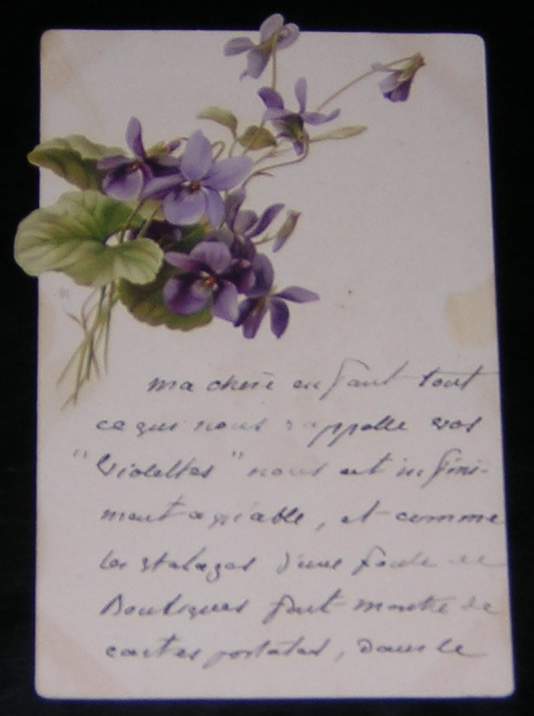 ma chère enfant tout
ce qui nous rappelle vos
"Violettes" nous est infini-
ment agréable, et comme
les étalages d'une foule de
Boutiques font montre de
cartes postales, dans le